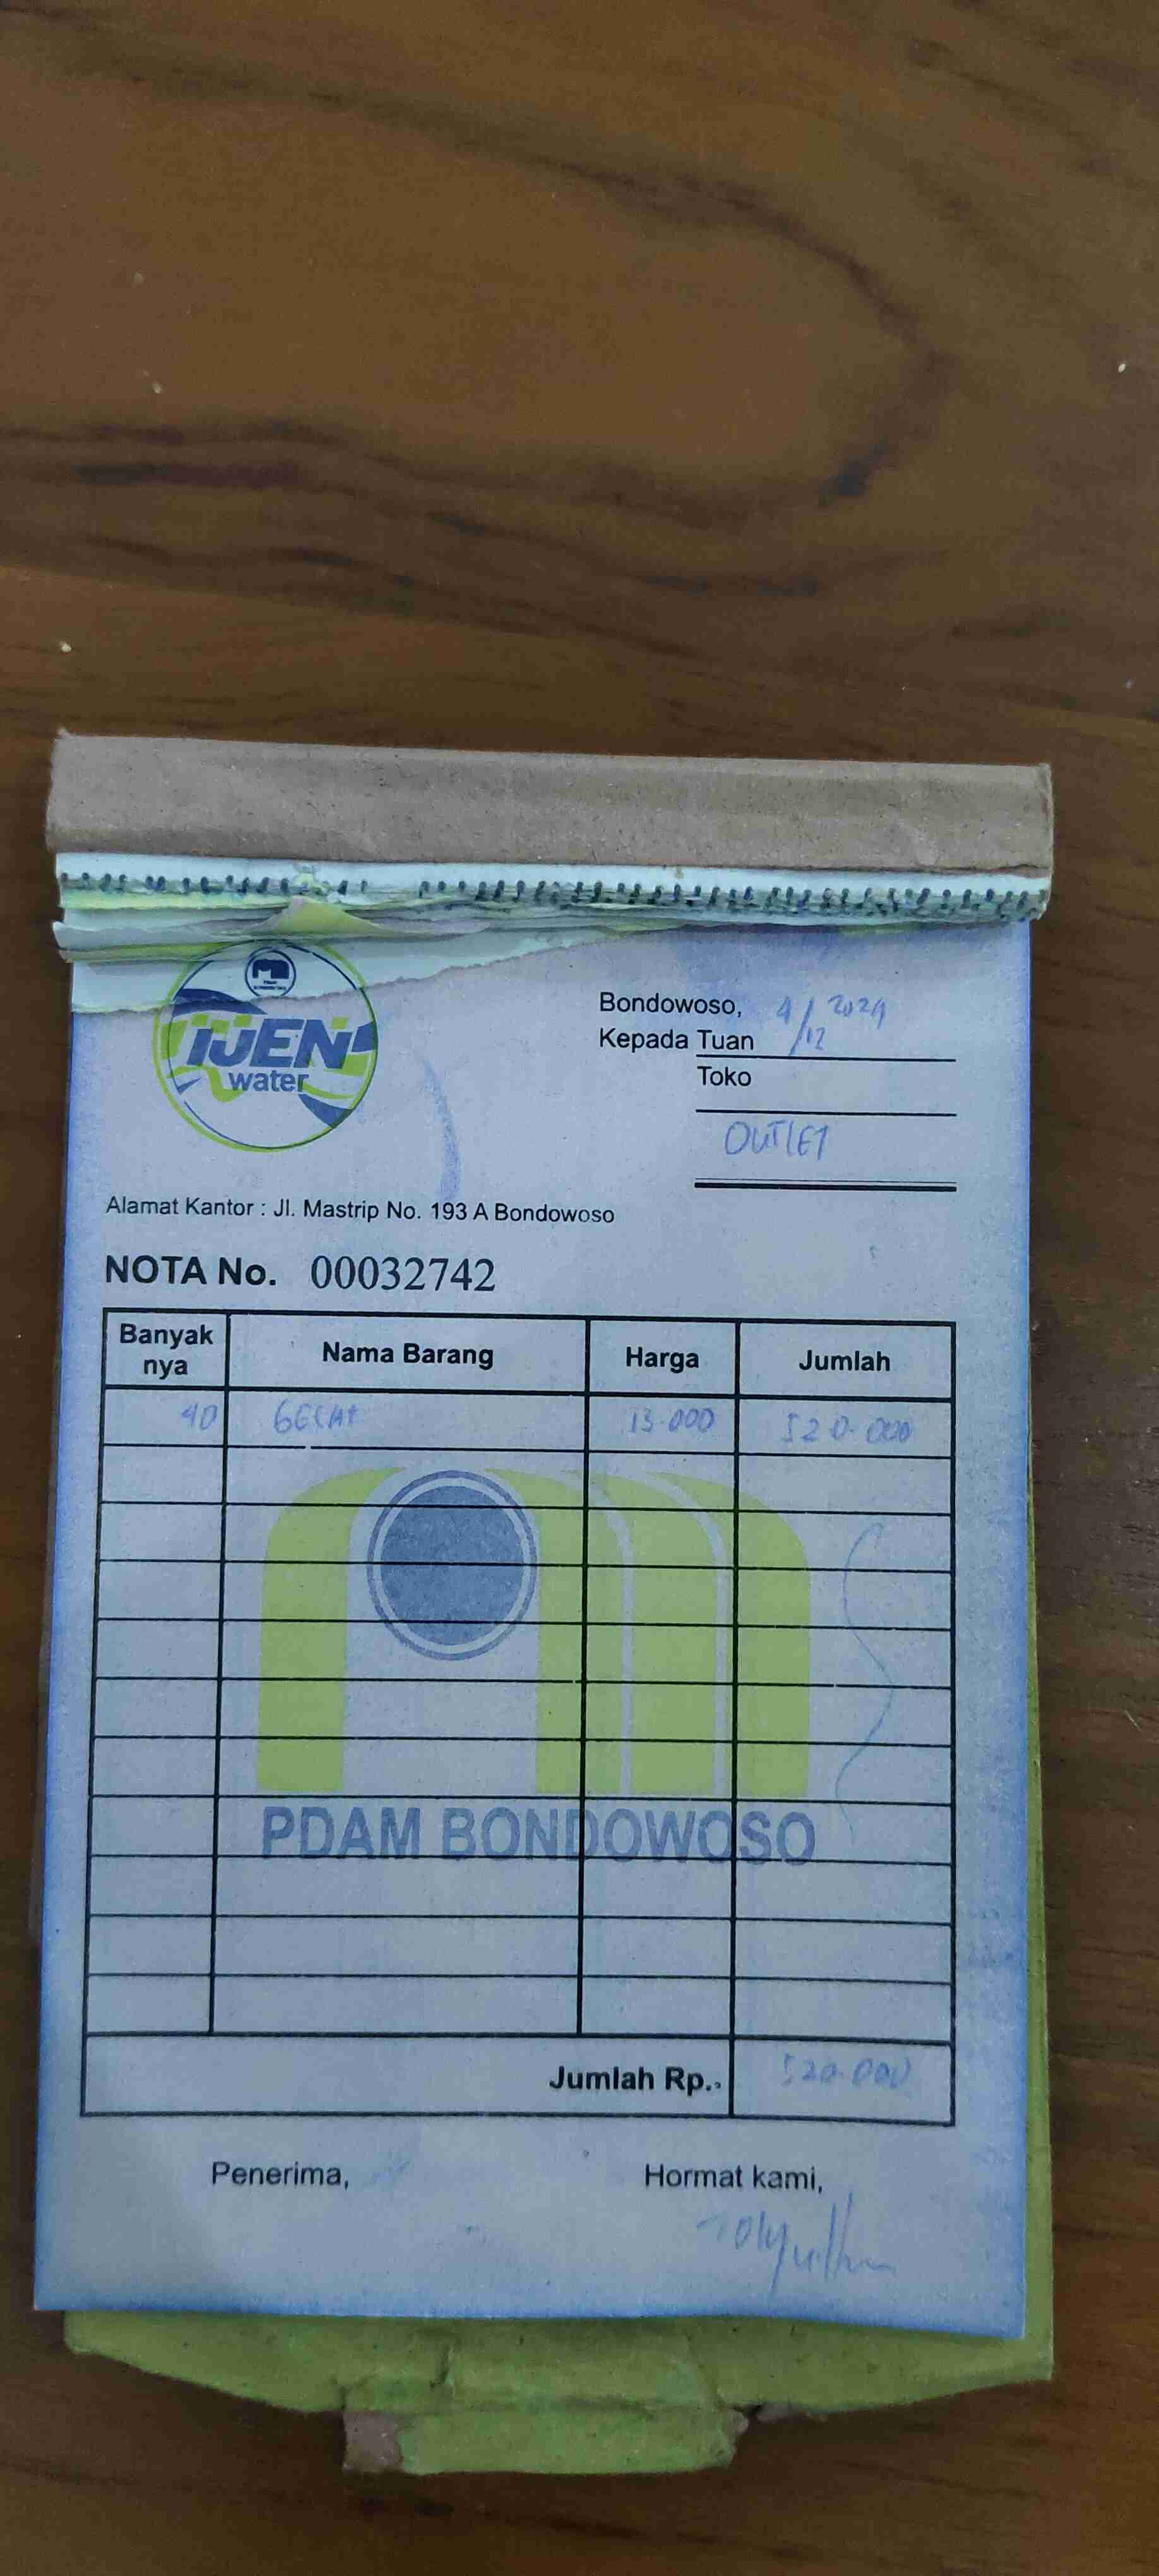 IJEN
water
Bondowoso, 4/12 2024
Kepada Tuan
Toko
OUTLET
Alamat Kantor : Jl. Mastrip No. 193 A Bondowoso
NOTA No. 00032742
Banyak nya Nama Barang Harga Jumlah
40 GELAS 13.000 520.000
PDAM BONDOWOSO
Jumlah Rp. 520.000
Penerima, Hormat kami,